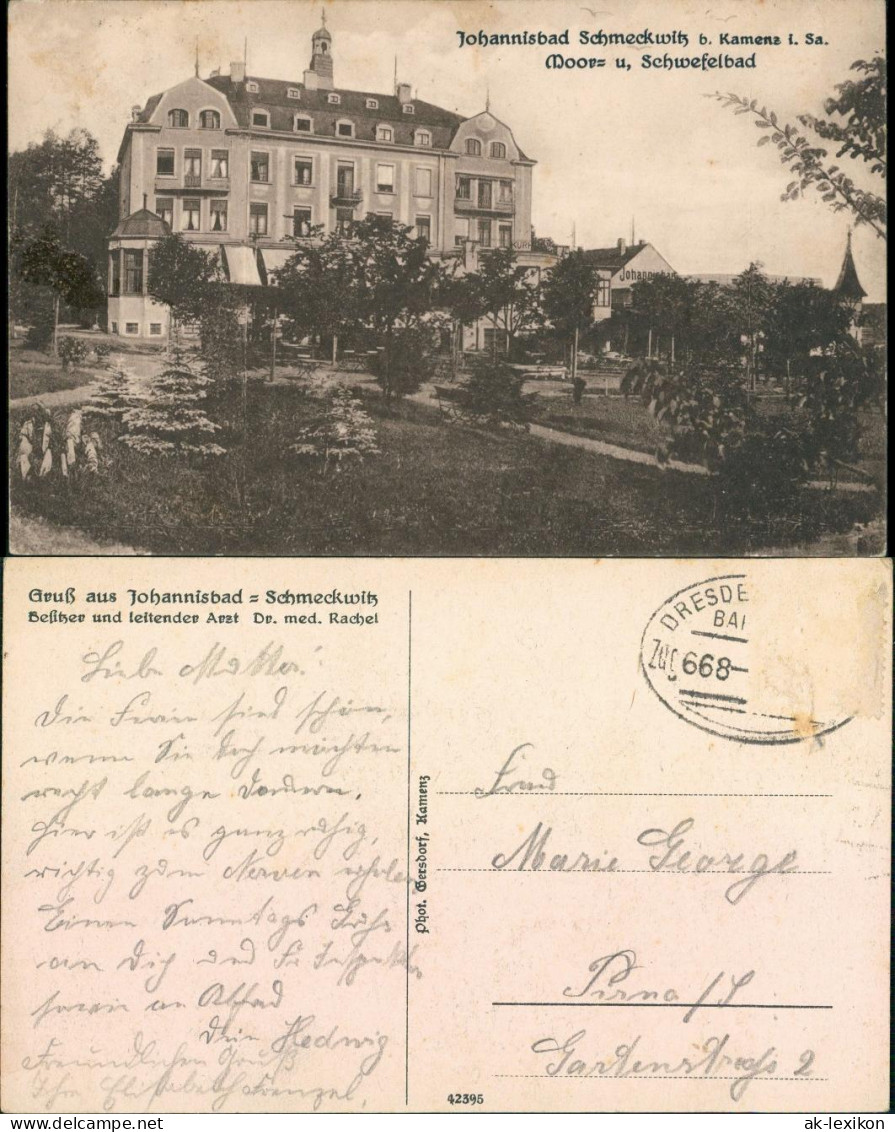 Johannisbad Schmeckwitz b. Kamenz i. Sa.
Moor= u, Schwefelbad
KURH
Johannisbad
Gruß aus Johannisbad = Schmeckwitz
Besitzer und leitender Arzt Dr. med. Rachel
Liebe Mutter!
Die Ferien sind schön,
wenn Sie doch möchten
recht lange dauern.
Hier ist es ganz ruhig,
richtig zum Nerven erholen
Einen Sonntags Gruß
an Dich und
sowie an Alfred
Dein Hedwig
Freundlichen Gruß
Ihre Elisabeth Frenzel.
Phot. Gersdorf, Kamenz
42395
DRESDE
BA
Zug 668
Frau
Marie George
Pirna / S
Gartenstraße 2
ak-lexikon